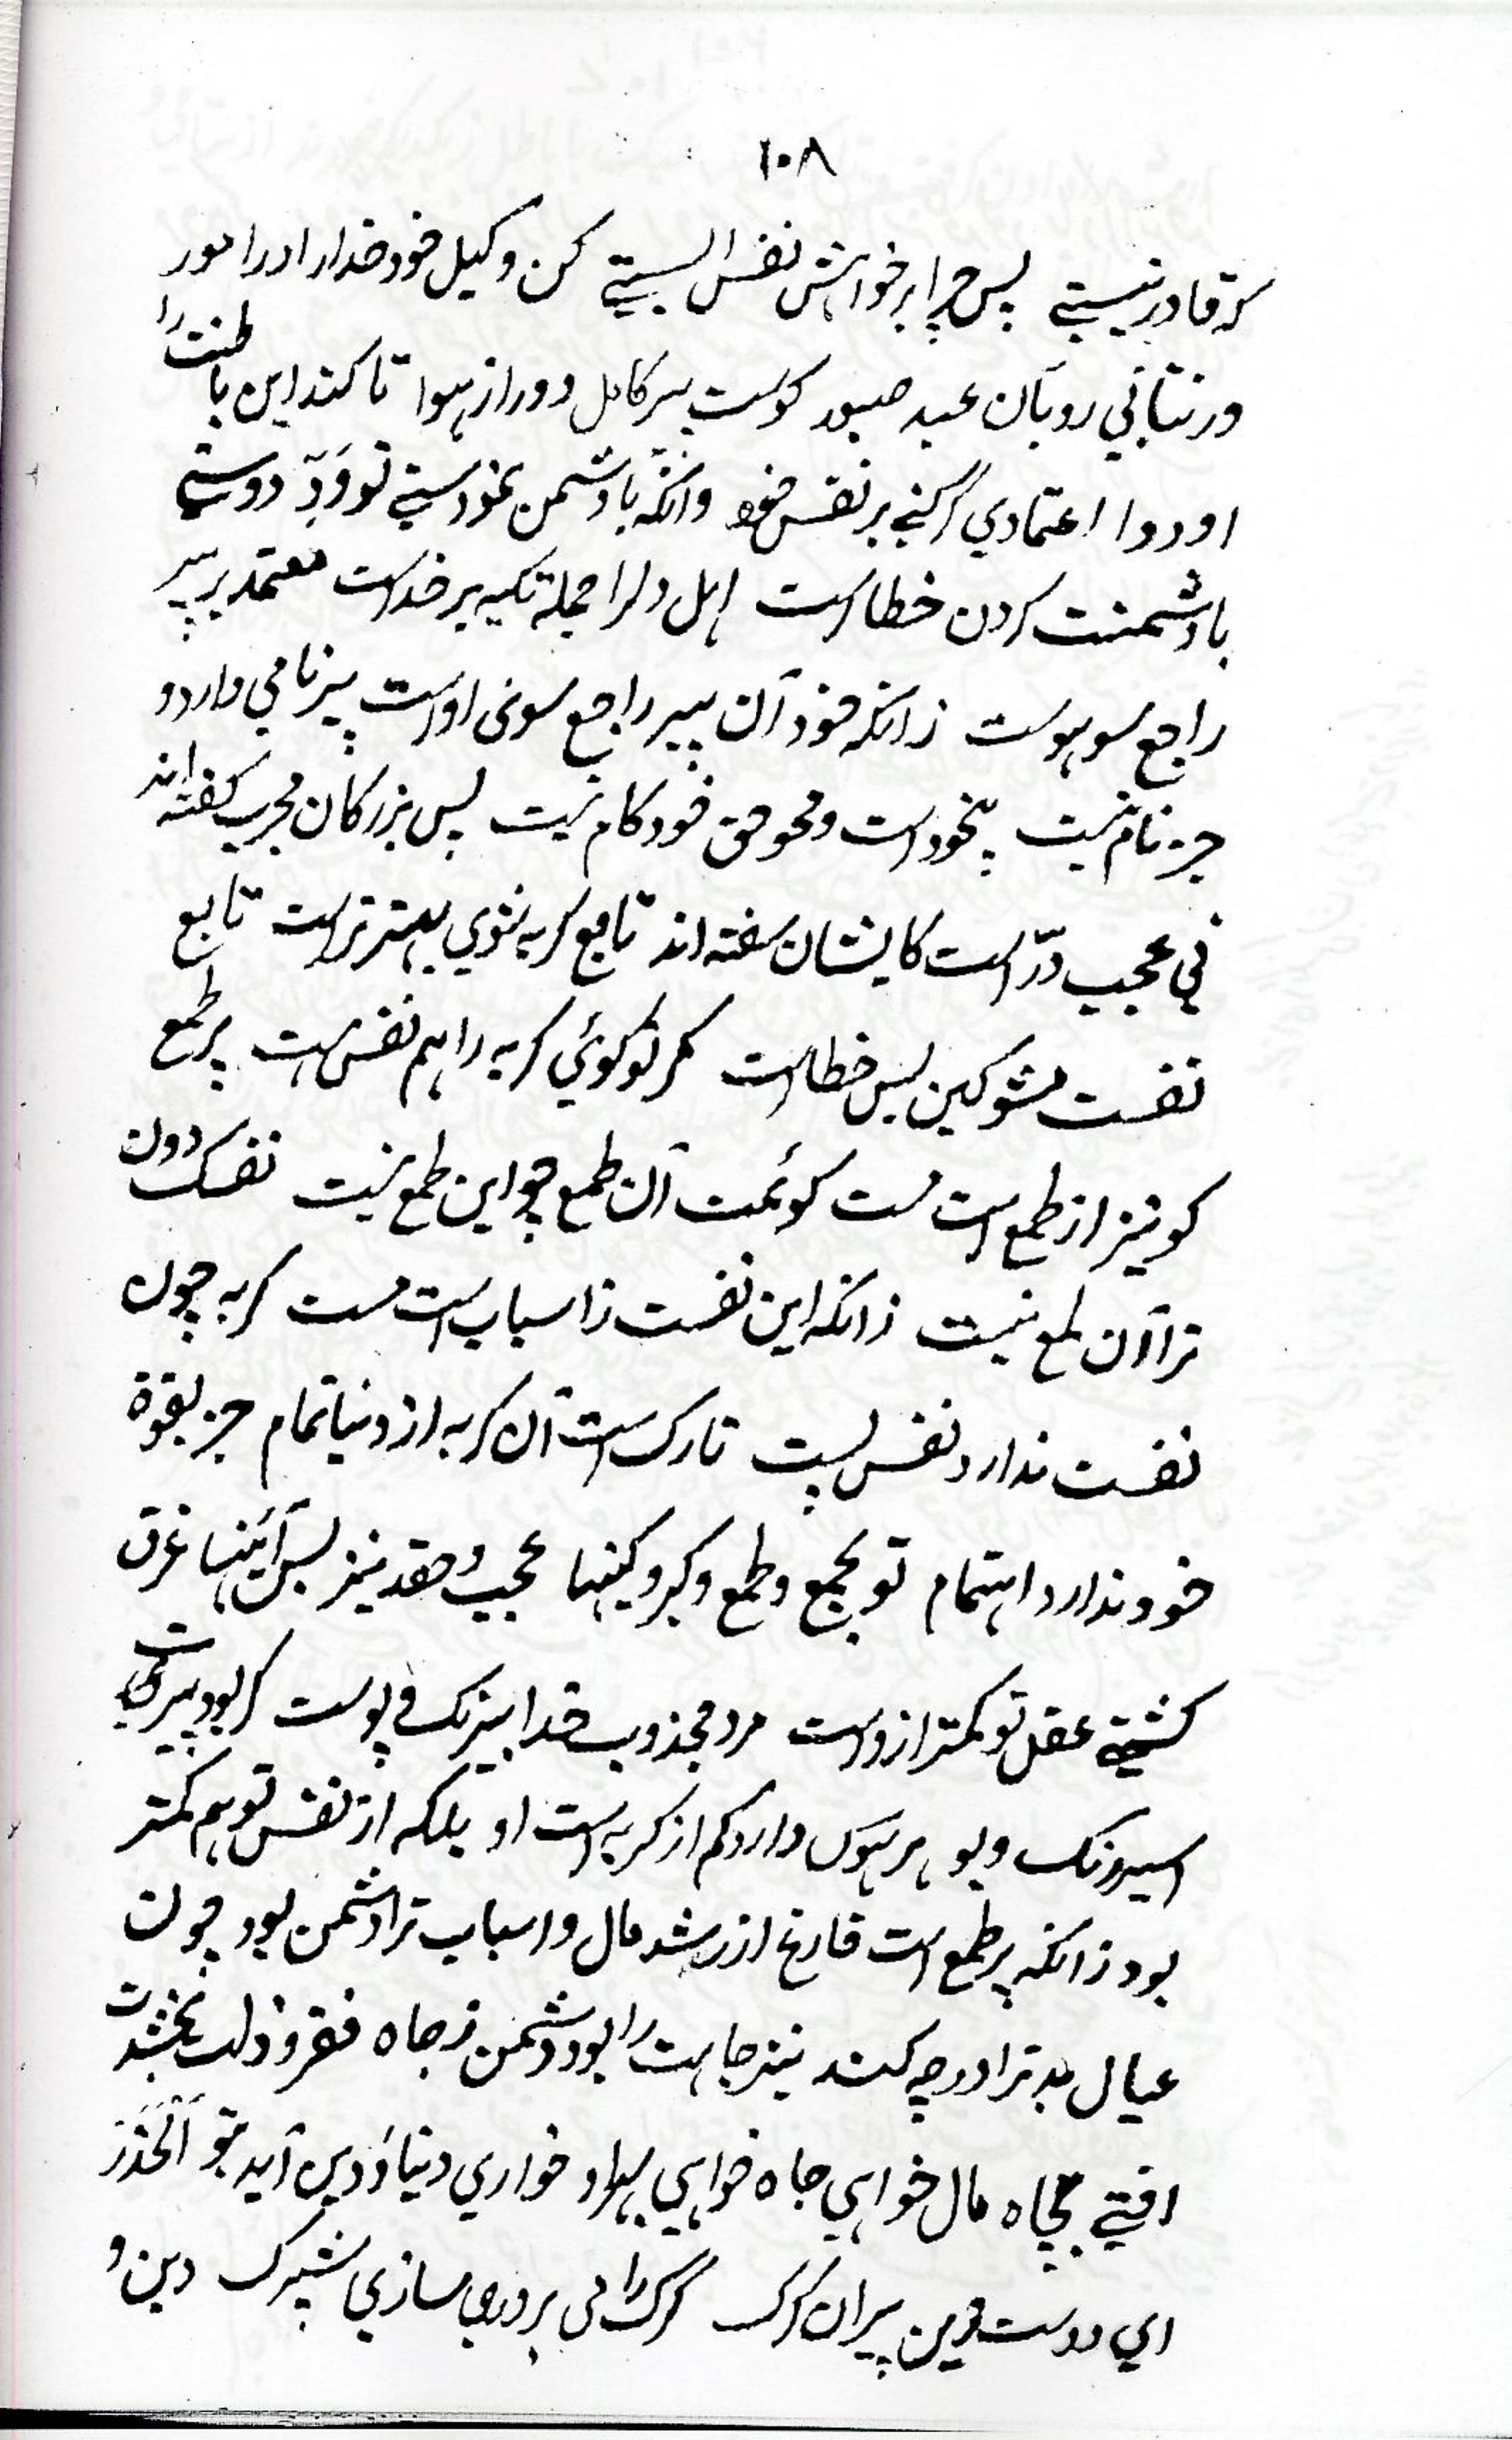 ١٠٨
كه قادر نيستي پس چرا بر خواهش نفس ايستي كن وكيل خود خدا را در امور
ور نتابي رو بآن عبد صبور كوست پير كامل دور از هوا تا كند اين باطنت را
او دوا اعتمادي گر كني بر نفس خود وانكه با دشمن نمودستي تو وُدّ دوستي
با دشمنت كردن خطاست اهل دلرا جمله تكيه بر خداست معتمد بر پير
راجع سو هوست زانكه خود آن پير راجع سوى اوست پير نامي دارد و
جز نام نيست بيخود است و محو حق خود كام نيست پس بزركان مجرب كفته اند
ني عجيب درّ است كايشان سفته اند تابع كربه شوي بهتر تراست تابع
نفست مشو كين بس خطاست كر تو كوئي كربه را هم نفس هست پر طمع
كو نيز از طمع است مست كويمت آن طمع چو اين طمع نيست نفسك دون
ترا آن لمع نيست زانكه اين نفست ز اسباب است مست كربه چون
نفست ندارد نفس پست تارك است آن كربه از دنيا تمام جز بقوة
خود ندارد اهتمام تو بجمع و طمع و كبر و كينها عجب و حقد نيز بس آئينها غرق
كشتي عقل تو كمتر ازوست مرد مجذوب خدا بيرنك و پوست كر بود پيريت
اسير رنك و بو هر هوس دارد كم از كربه است او بلكه از نفس تو هم كمتر
بود زانكه پر طمع است فارغ از رشد مال و اسباب ترا دشمن بود چون
عيال بد ترا درچه كند نيز جاهت را بود دشمن ز جاه فقر و ذلت بخشدت
افتي بچاه مال خواهي جاه خواهي بهر او خواري دنيا و دين آيد بتو اَلحَذَر
اي دوست زين پيران كرك كرك را مى پروري سازي شترك دين و